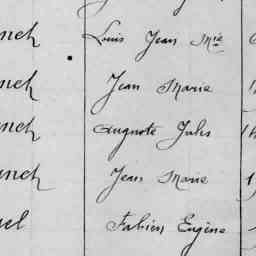 nch Louis Jean Mie
nch Jean Marie
nch Auguste Jules
nch Jean Marie
el Fabien Eugène